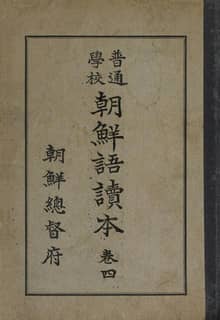 普通學校
朝鮮語讀本 卷四
朝鮮總督府